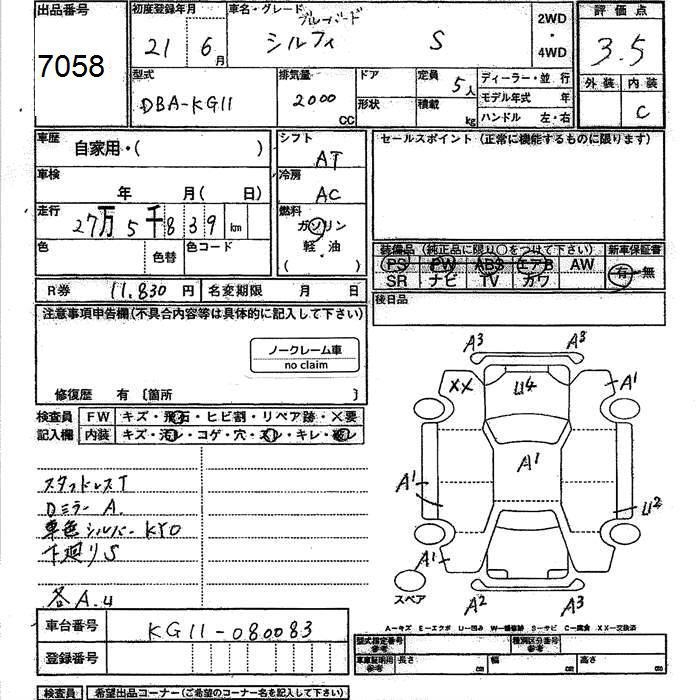 出品番号
7058
初度登録年月
21 6月
車名・グレード
ブルーバード
シルフィ S
2WD
・
4WD
評価点
3.5
外装 内装
C
型式
DBA-KG11
排気量
2000
CC
ドア
形状
定員
5人
積載
kg
ディーラー・並 行
モデル年式 年
ハンドル 左・右
車歴
自家用・( )
車検
年 月(日)
走行
27万5千839 km
色
色替
色コード
シフト
AT
冷房
AC
燃料
ガソリン
軽・油
( )
セールスポイント(正常に機能するものに限ります)
装備品(純正品に限り○をつけて下さい)
新車保証書
PS PW ABS エアB AW
SR ナビ TV カワ
有・無
R券 11.830 円
名変期限 月 日
後日品
注意事項申告欄(不具合内容等は具体的に記入して下さい)
ノークレーム車
no claim
修復歴 有〔箇所 〕
検査員
記入欄
FW キズ・飛石・ヒビ割・リペア跡・X要
内装 キズ・汚レ・コゲ・穴・スレ・キレ・破レ
スタッドレスT
DミラーA.
車色シルバーKY0
下廻りS
各A.U
A3 A3
XX U4 A1
A1
A1 U2
A1
A2 A3
スペア
A-キズ E-エクボ U-凹み W-補修跡 S-サビ C-腐食 XX-交換済
車台番号
KG11-080083
登録番号
型式指定番号
参考
種別区分番号
参考
車庫証明用
参考
長さ cm
幅 cm
高さ cm
検査員
希望出品コーナー(ご希望のコーナー名を記入して下さい)